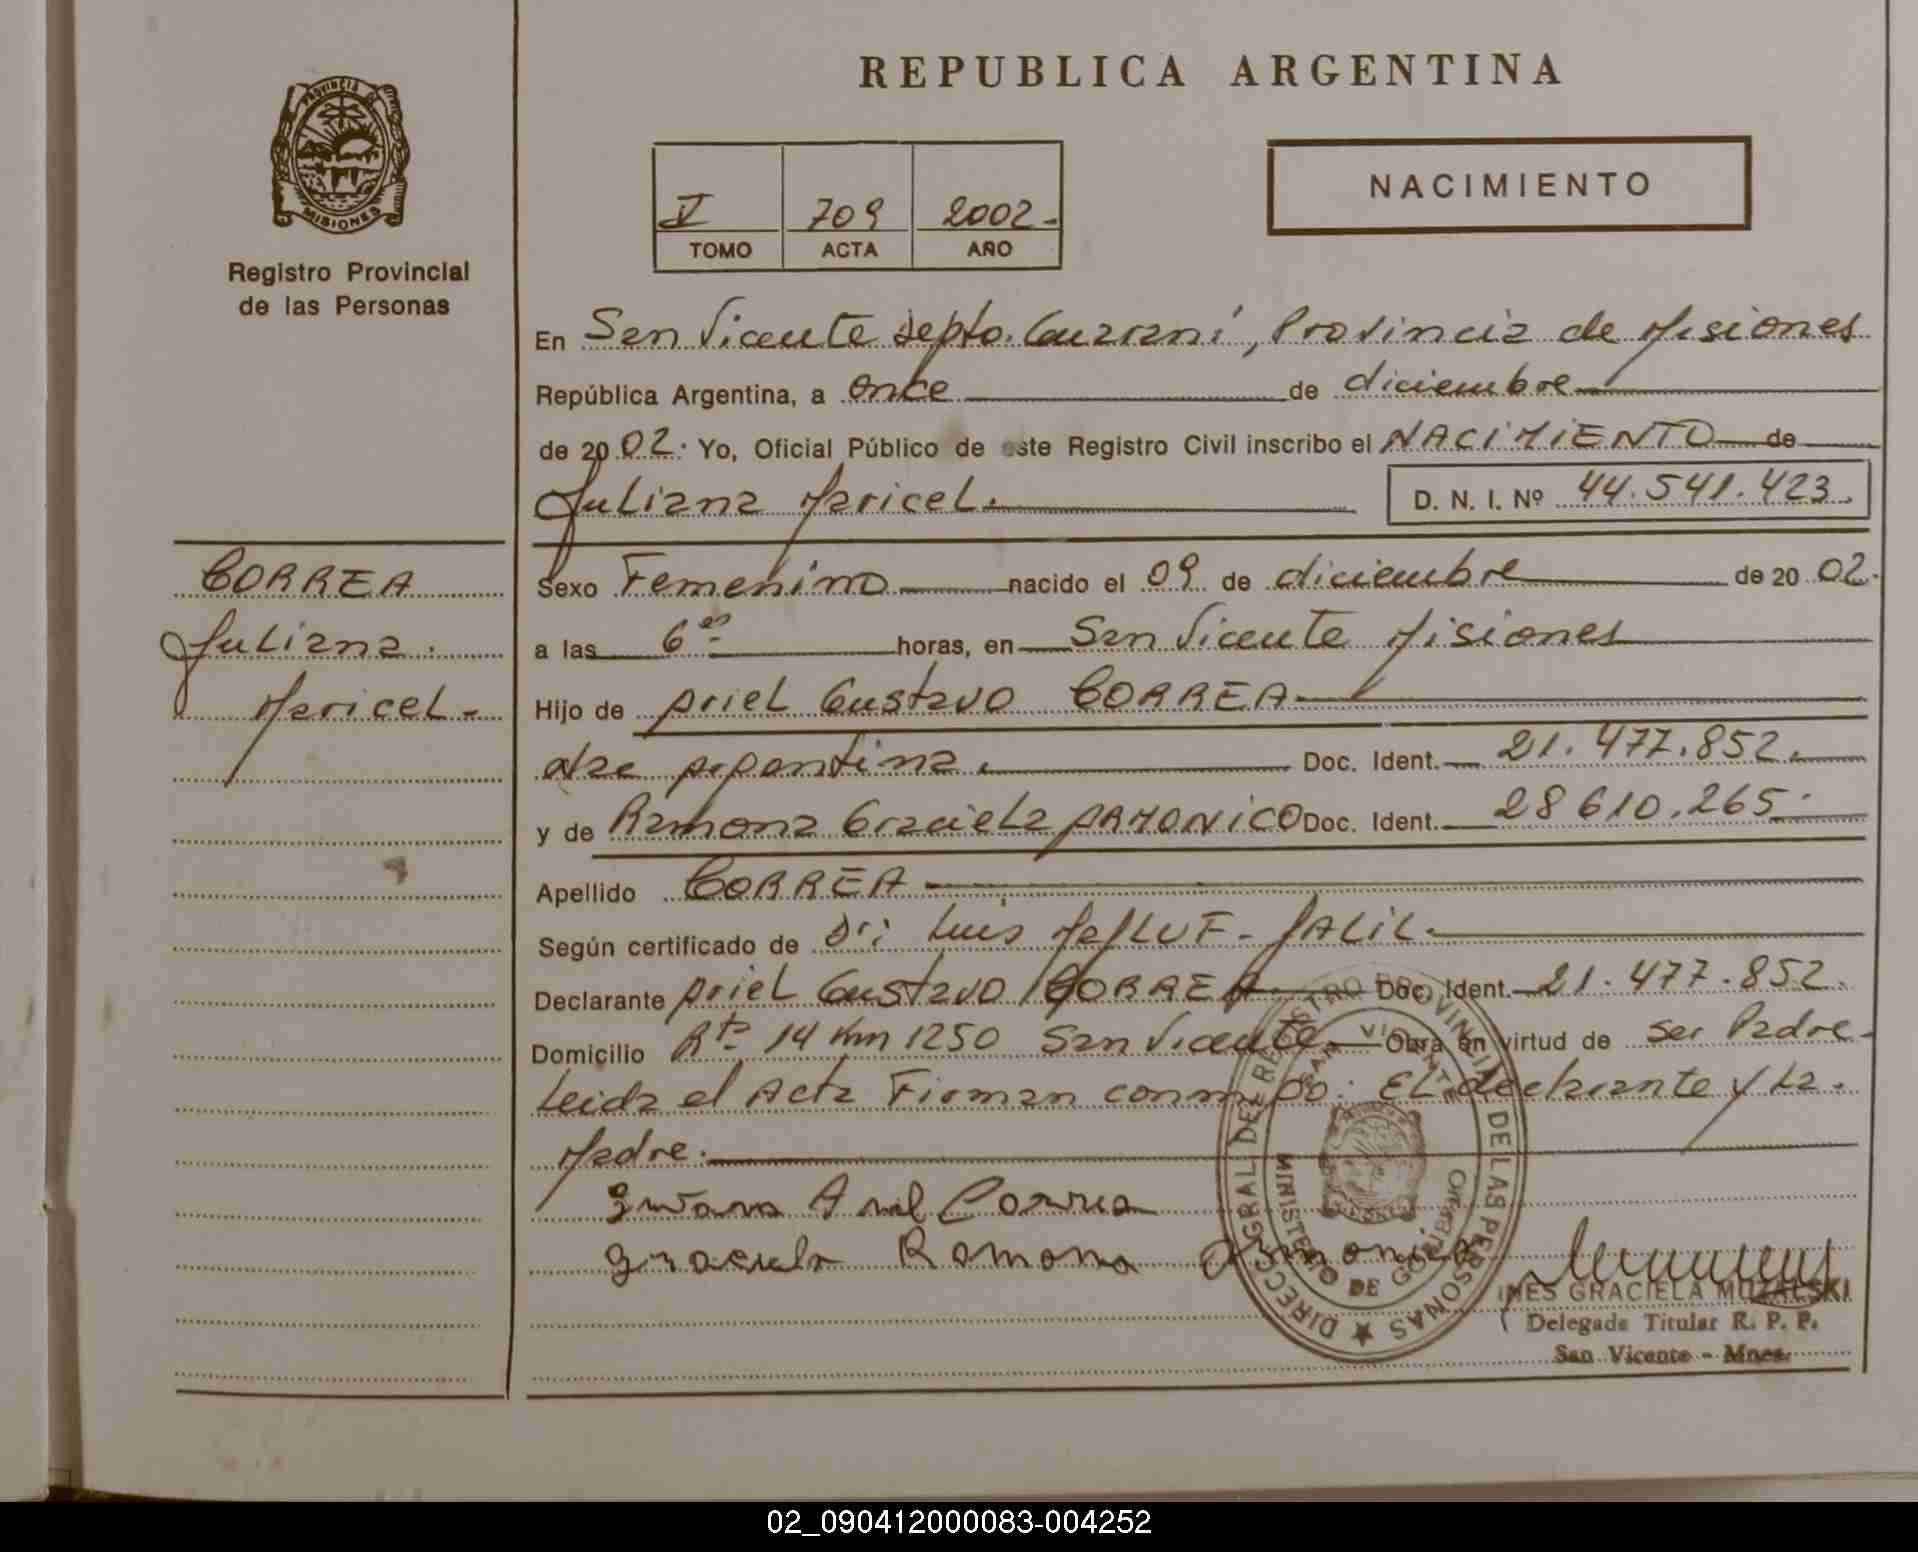 REPUBLICA ARGENTINA
PROVINCIA DE
MISIONES
Registro Provincial
de las Personas
V 709 2002-
TOMO ACTA AÑO
NACIMIENTO
En San Vicente Depto. Guarani, Provincia de Misiones
República Argentina, a once de diciembre
de 2002. Yo, Oficial Público de este Registro Civil inscribo el NACIMIENTO de
Juliana Maricel. D. N. I. Nº 44.541.423.
CORREA
Juliana.
Maricel-
Sexo Femenino nacido el 09 de diciembre de 2002.
a las 6 horas, en San Vicente Misiones
Hijo de Ariel Gustavo CORREA
argentina. Doc. Ident. 21.477.852.
y de Ramona Graciela ARMONICO Doc. Ident. 28610.265.
Apellido CORREA
Según certificado de Dr: Luis JALIL.
Declarante Ariel Gustavo CORREA. Doc. Ident. 21.477.852.
Domicilio Rta 14 Km 1250 San Vicente Obra en virtud de ser Padre-
Leida el Acta Firman conmigo: El declarante y la.
Madre.
Ariel Correa
Graciela Ramona
DIRECC. GRAL DEL REGISTRO PROVINCIAL DE LAS PERSONAS
SAN VICENTE
MINISTERIO DE GOBIERNO
INES GRACIELA MUZALSKI
Delegada Titular R. P. P.
San Vicente - Mnes.
02_090412000083-004252